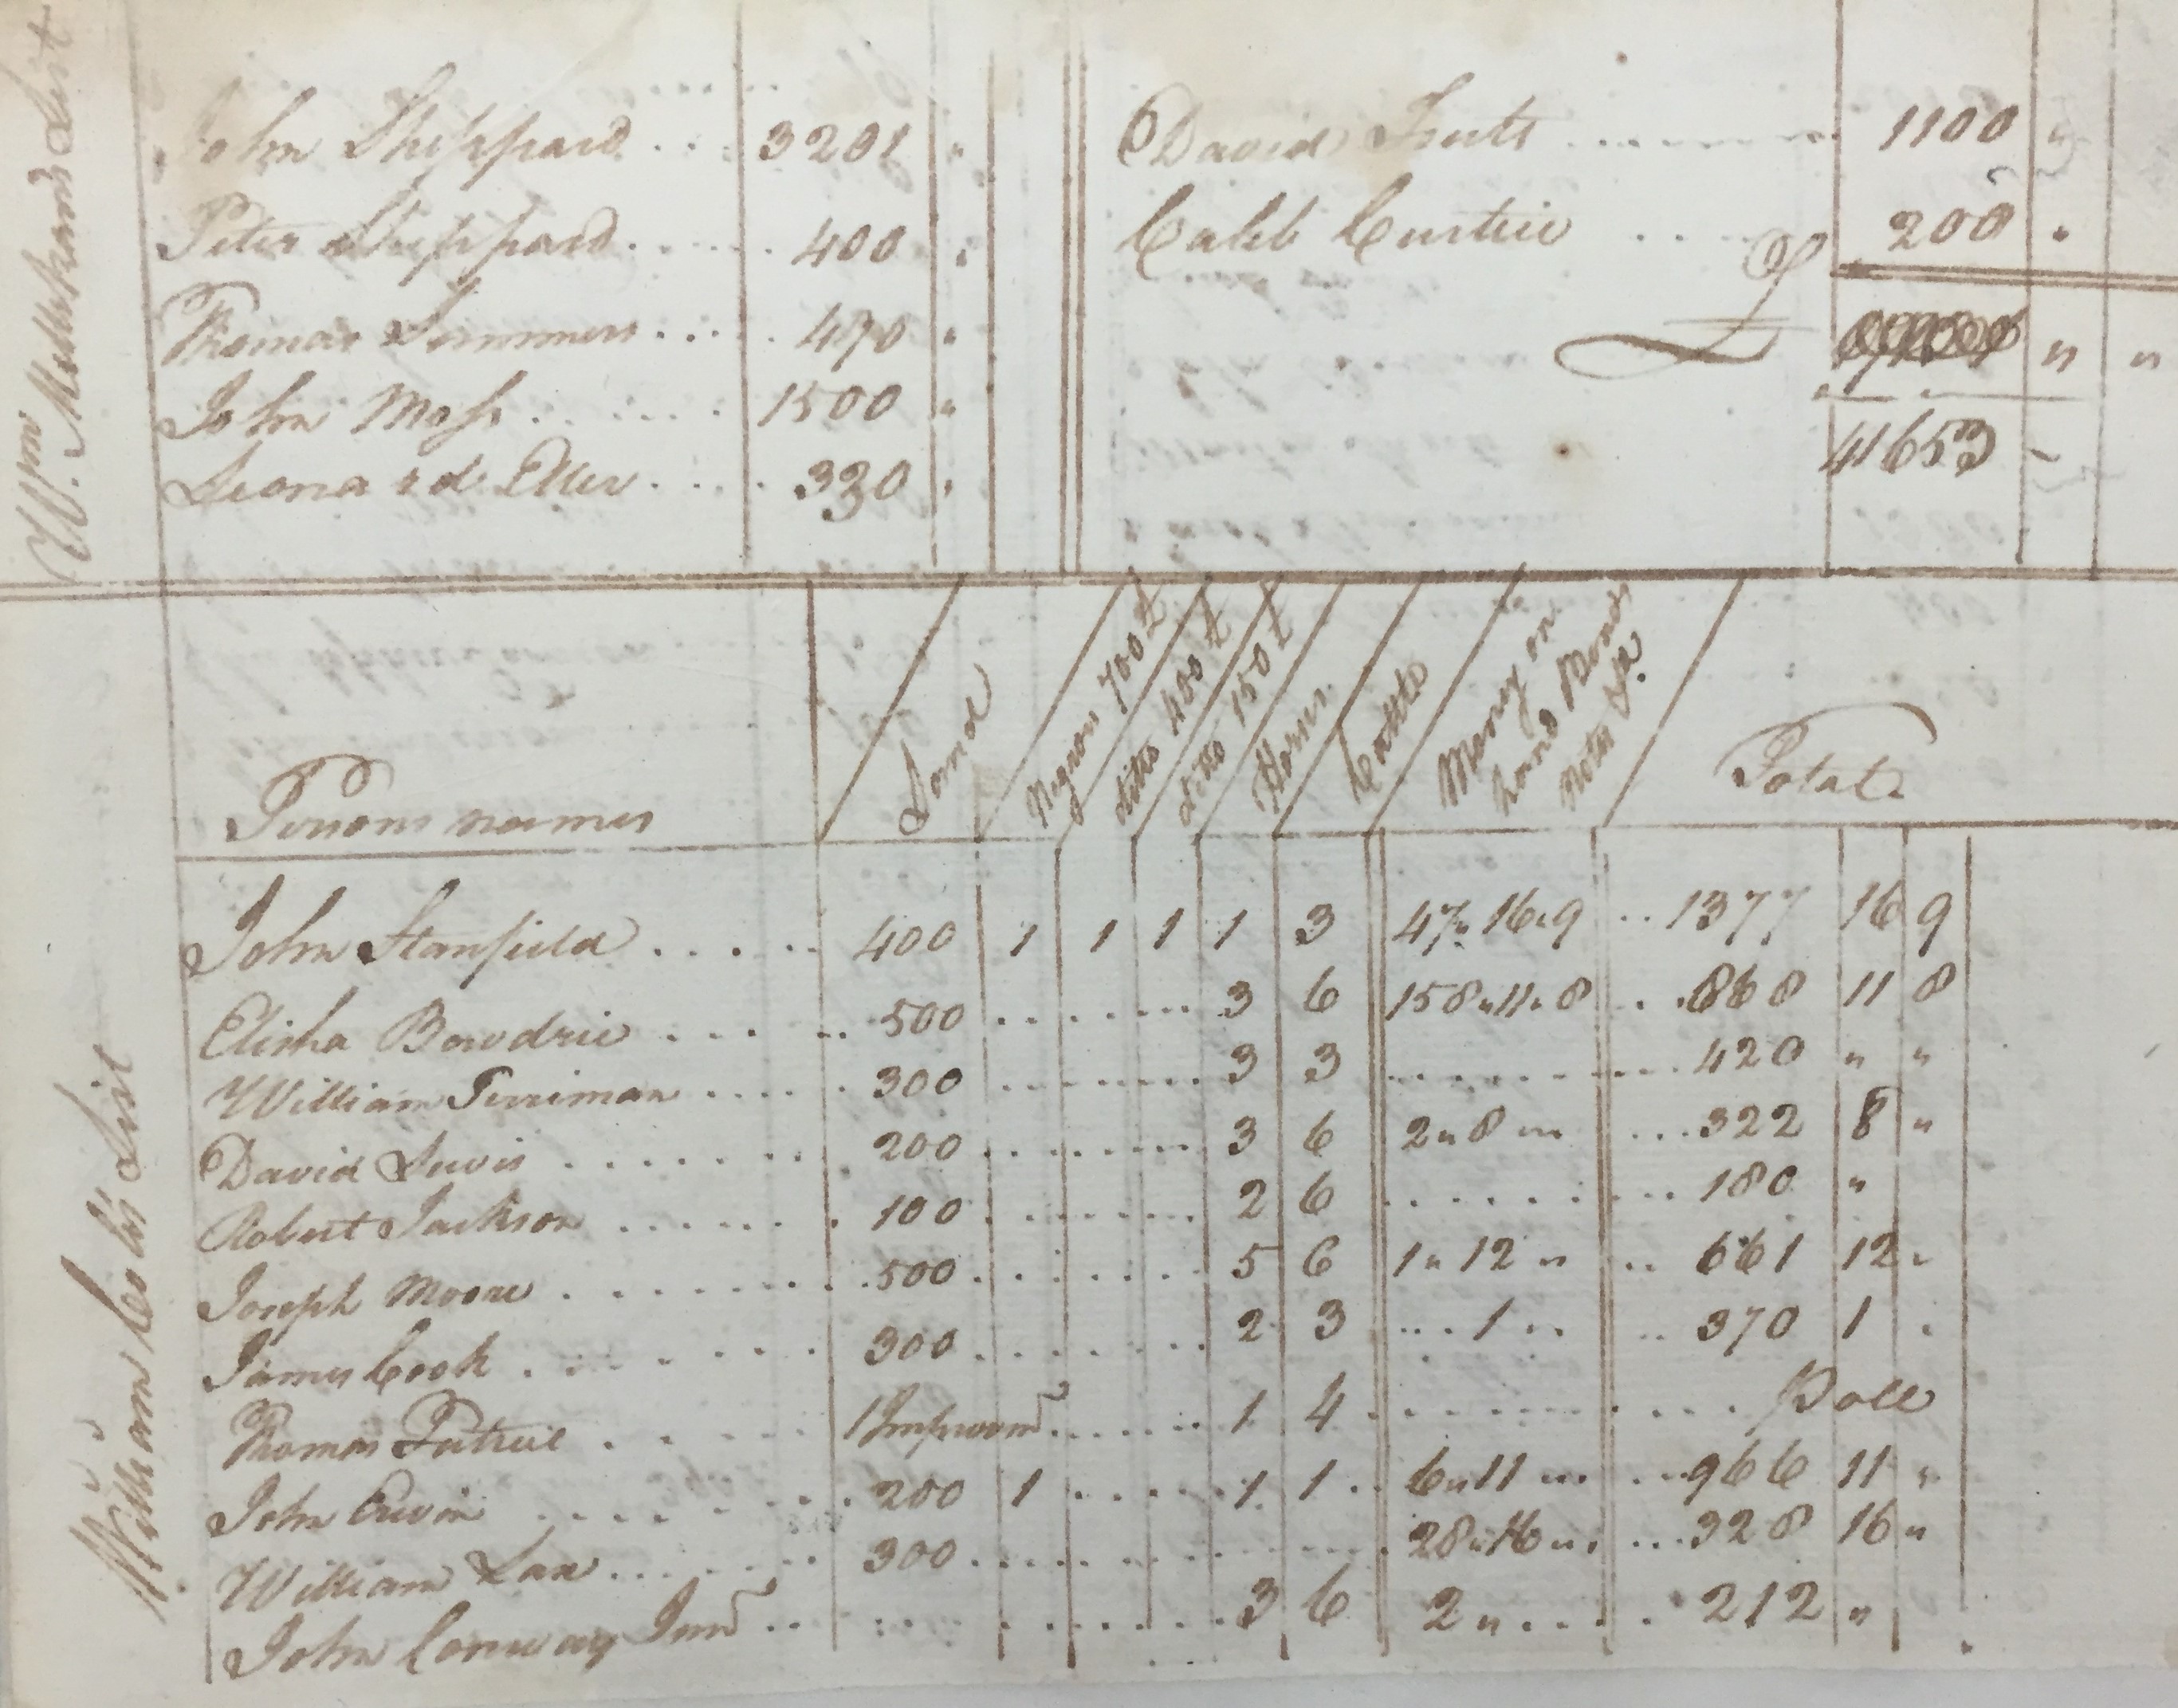 John Sheppard . . . 3201 "
Peter Sheppard . . . . 400 "
Thomas Summers . . . . 470 "
John Moss . . . . . 1500 "
Leonard Eller . . . . 330 "
David Fults . . . . . . 1100 "
Caleb Custice . . . 200 "
" "
41653 –
Wm.
List
Persons names
Land
Negroes 700 £
ditto 400 £
ditto 150 £
Horses
Cattle
Money on hand Bonds Notes &c.
Total
William Cole's List
John Stanfield . . . . . 400 1 1 1 1 3 47 " 16 " 9 . . 1377 16 9
Elisha Bowdrie . . . . . 500 . . . . . . 3 6 158 " 11 " 8 . . 868 11 8
William Terriman . . . . 300 . . . . . . 3 3 . . . . . . 420 " "
David Lewis . . . . . . 200 . . . . . . 3 6 2 " 8 " . . . 322 8 "
Robert Jackson . . . . . . 100 . . . . . . 2 6 . . . . . . 180 "
Joseph Moore . . . . . . 500 . . . . . . 5 6 1 " 12 " . . 661 12 "
James Cook . . . . . . 300 . . . . . . 2 3 . . . 1 " . . 370 1 "
Thomas . . . . . 1 Improvmt . . . . . 1 4 . . . . . . Poll
John Erwin . . . . . 200 1 . . . . 1 1 . . 6 " 11 " . . . 966 11 "
William Lax . . . . . 300 . . . . . . 28 " 16 " . . . 328 16 "
John Conway Junr . . . . . . . . 3 6 2 " . . . . 212 "